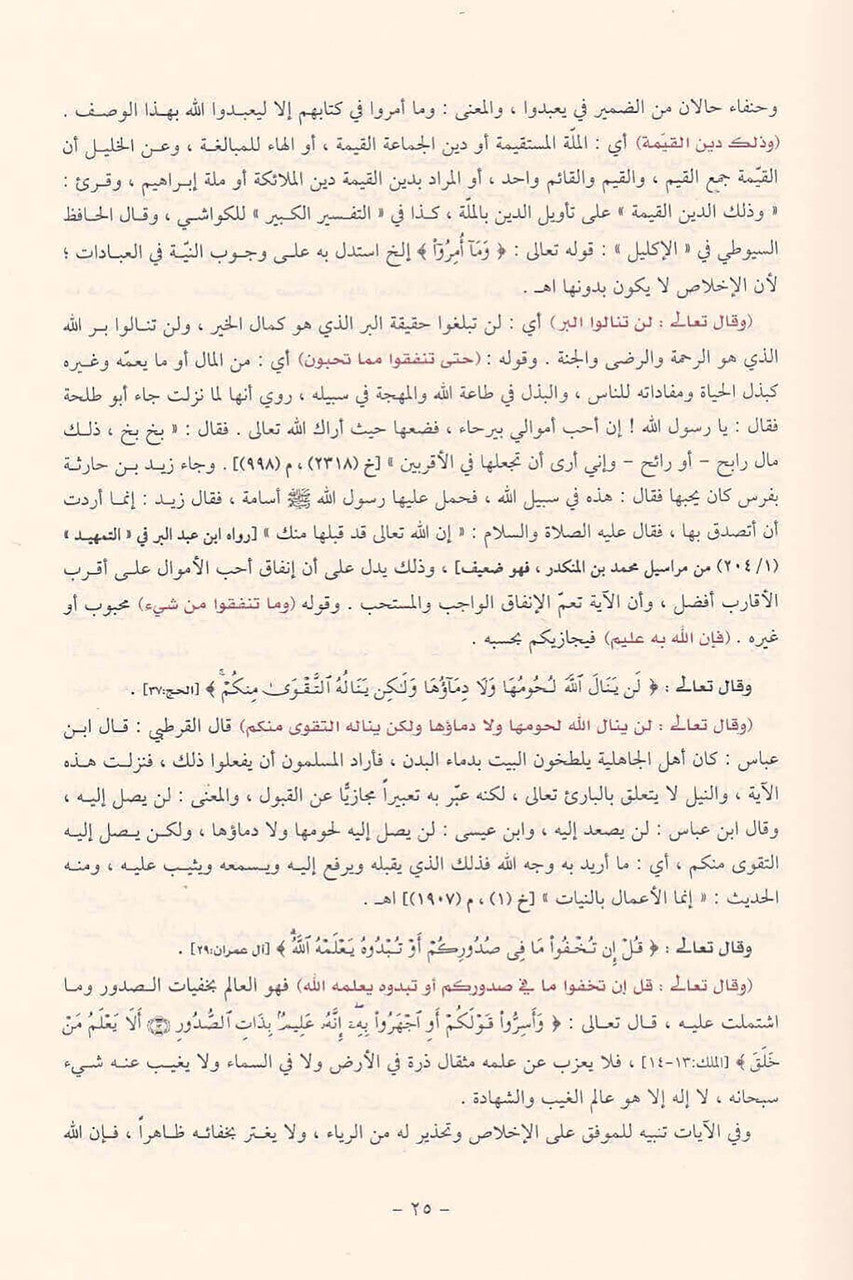 وحنفاء حالان من الضمير في يعبدوا ، والمعنى : وما أمروا في كتابهم إلا ليعبدوا الله بهذا الوصف .
(وذلك دين القيّمة) أي : الملّة المستقيمة أو دين الجماعة القيمة ، أو الهاء للمبالغة ، وعن الخليل أن
القيّمة جمع القيم ، والقيم والقائم واحد ، أو المراد بدين القيمة دين الملائكة أو ملة إبراهيم ، وقرئ :
« وذلك الدين القيمة » على تأويل الدين بالملّة ، كذا في « التفسير الكبير » للكواشي ، وقال الحافظ
السيوطي في « الإكليل » : قوله تعالى : ﴿ وَمَآ أُمِرُوٓا۟ ﴾ إلخ استدل به على وجوب النيّة في العبادات ؛
لأن الإخلاص لا يكون بدونها اهـ .
(وقال تعالى : لن تنالوا البر) أي : لن تبلغوا حقيقة البر الذي هو كمال الخير ، ولن تنالوا بر الله
الذي هو الرحمة والرضى والجنة . وقوله : (حتى تنفقوا مما تحبون) أي : من المال أو ما يعمّه وغيره
كبذل الحياة ومفاداته للناس ، والبذل في طاعة الله والمهجة في سبيله ، روي أنها لما نزلت جاء أبو طلحة
فقال : يا رسول الله ! إن أحب أموالي بيرحاء ، فضعها حيث أراك الله تعالى . فقال : « بخ بخ ، ذلك
مال رابح – أو رائح – وإني أرى أن تجعلها في الأقربين » [خ (٢٣١٨) ، م (٩٩٨)] . وجاء زيد بن حارثة
بفرس كان يحبها فقال : هذه في سبيل الله ، فحمل عليها رسول الله ﷺ أسامة ، فقال زيد : إنما أردت
أن أتصدق بها ، فقال عليه الصلاة والسلام : « إن الله تعالى قد قبلها منك » [رواه ابن عبد البر في « التمهيد »
(٢٠٤/١) من مراسيل محمد بن المنكدر ، فهو ضعيف] ، وذلك يدل على أن إنفاق أحب الأموال على أقرب
الأقارب أفضل ، وأن الآية تعمّ الإنفاق الواجب والمستحب . وقوله (وما تنفقوا من شيء) محبوب أو
غيره . (فإن الله به عليم) فيجازيكم بحسبه .
وقال تعالى : ﴿ لَن يَنَالَ ٱللَّهَ لُحُومُهَا وَلَا دِمَآؤُهَا وَلَٰكِن يَنَالُهُ ٱلتَّقْوَىٰ مِنكُمْ ۚ ﴾ [الحج:٣٧] .
(وقال تعالى : لن ينال الله لحومها ولا دماؤها ولكن يناله التقوى منكم) قال القرطبي : قال ابن
عباس : كان أهل الجاهلية يلطخون البيت بدماء البدن ، فأراد المسلمون أن يفعلوا ذلك ، فنزلت هذه
الآية ، والنيل لا يتعلق بالبارئ تعالى ، لكنه عبّر به تعبيراً مجازيًّا عن القبول ، والمعنى : لن يصل إليه ،
وقال ابن عباس : لن يصعد إليه ، وابن عيسى : لن يصل إليه لحومها ولا دماؤها ، ولكن يصل إليه
التقوى منكم ، أي : ما أريد به وجه الله فذلك الذي يقبله ويرفع إليه ويسمعه ويثيب عليه ، ومنه
الحديث : « إنما الأعمال بالنيات » [خ (١) ، م (١٩٠٧)] اهـ .
وقال تعالى : ﴿ قُلْ إِن تُخْفُوا۟ مَا فِى صُدُورِكُمْ أَوْ تُبْدُوهُ يَعْلَمْهُ ٱللَّهُ ۗ ﴾ [آل عمران:٢٩] .
(وقال تعالى : قل إن تخفوا ما في صدوركم أو تبدوه يعلمه الله) فهو العالم بخفيات الصدور وما
اشتملت عليه ، قال تعالى : ﴿ وَأَسِرُّوا۟ قَوْلَكُمْ أَوِ ٱجْهَرُوا۟ بِهِۦٓ ۖ إِنَّهُۥ عَلِيمٌۢ بِذَاتِ ٱلصُّدُورِ ۝١٣ أَلَا يَعْلَمُ مَنْ
خَلَقَ ﴾ [الملك:١٣-١٤] ، فلا يعزب عن علمه مثقال ذرة في الأرض ولا في السماء ولا يغيب عنه شيء
سبحانه ، لا إله إلا هو عالم الغيب والشهادة .
وفي الآيات تنبيه للموفق على الإخلاص وتحذير له من الرياء ، ولا يغتر بخفائه ظاهراً ، فإن الله
– ٢٥ –